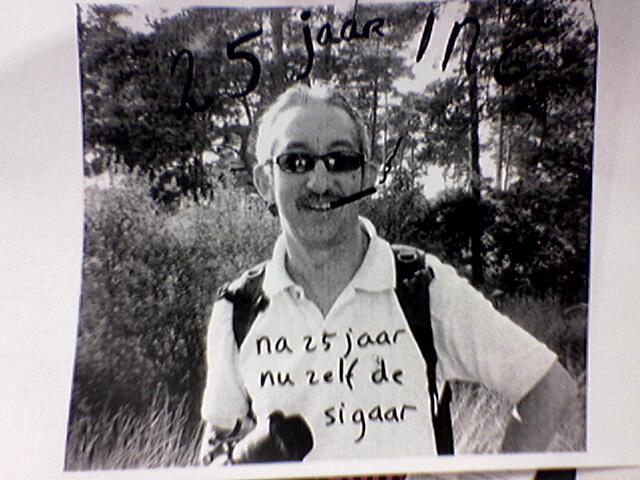 25 jaar ING
na 25 jaar
nu zelf de
sigaar